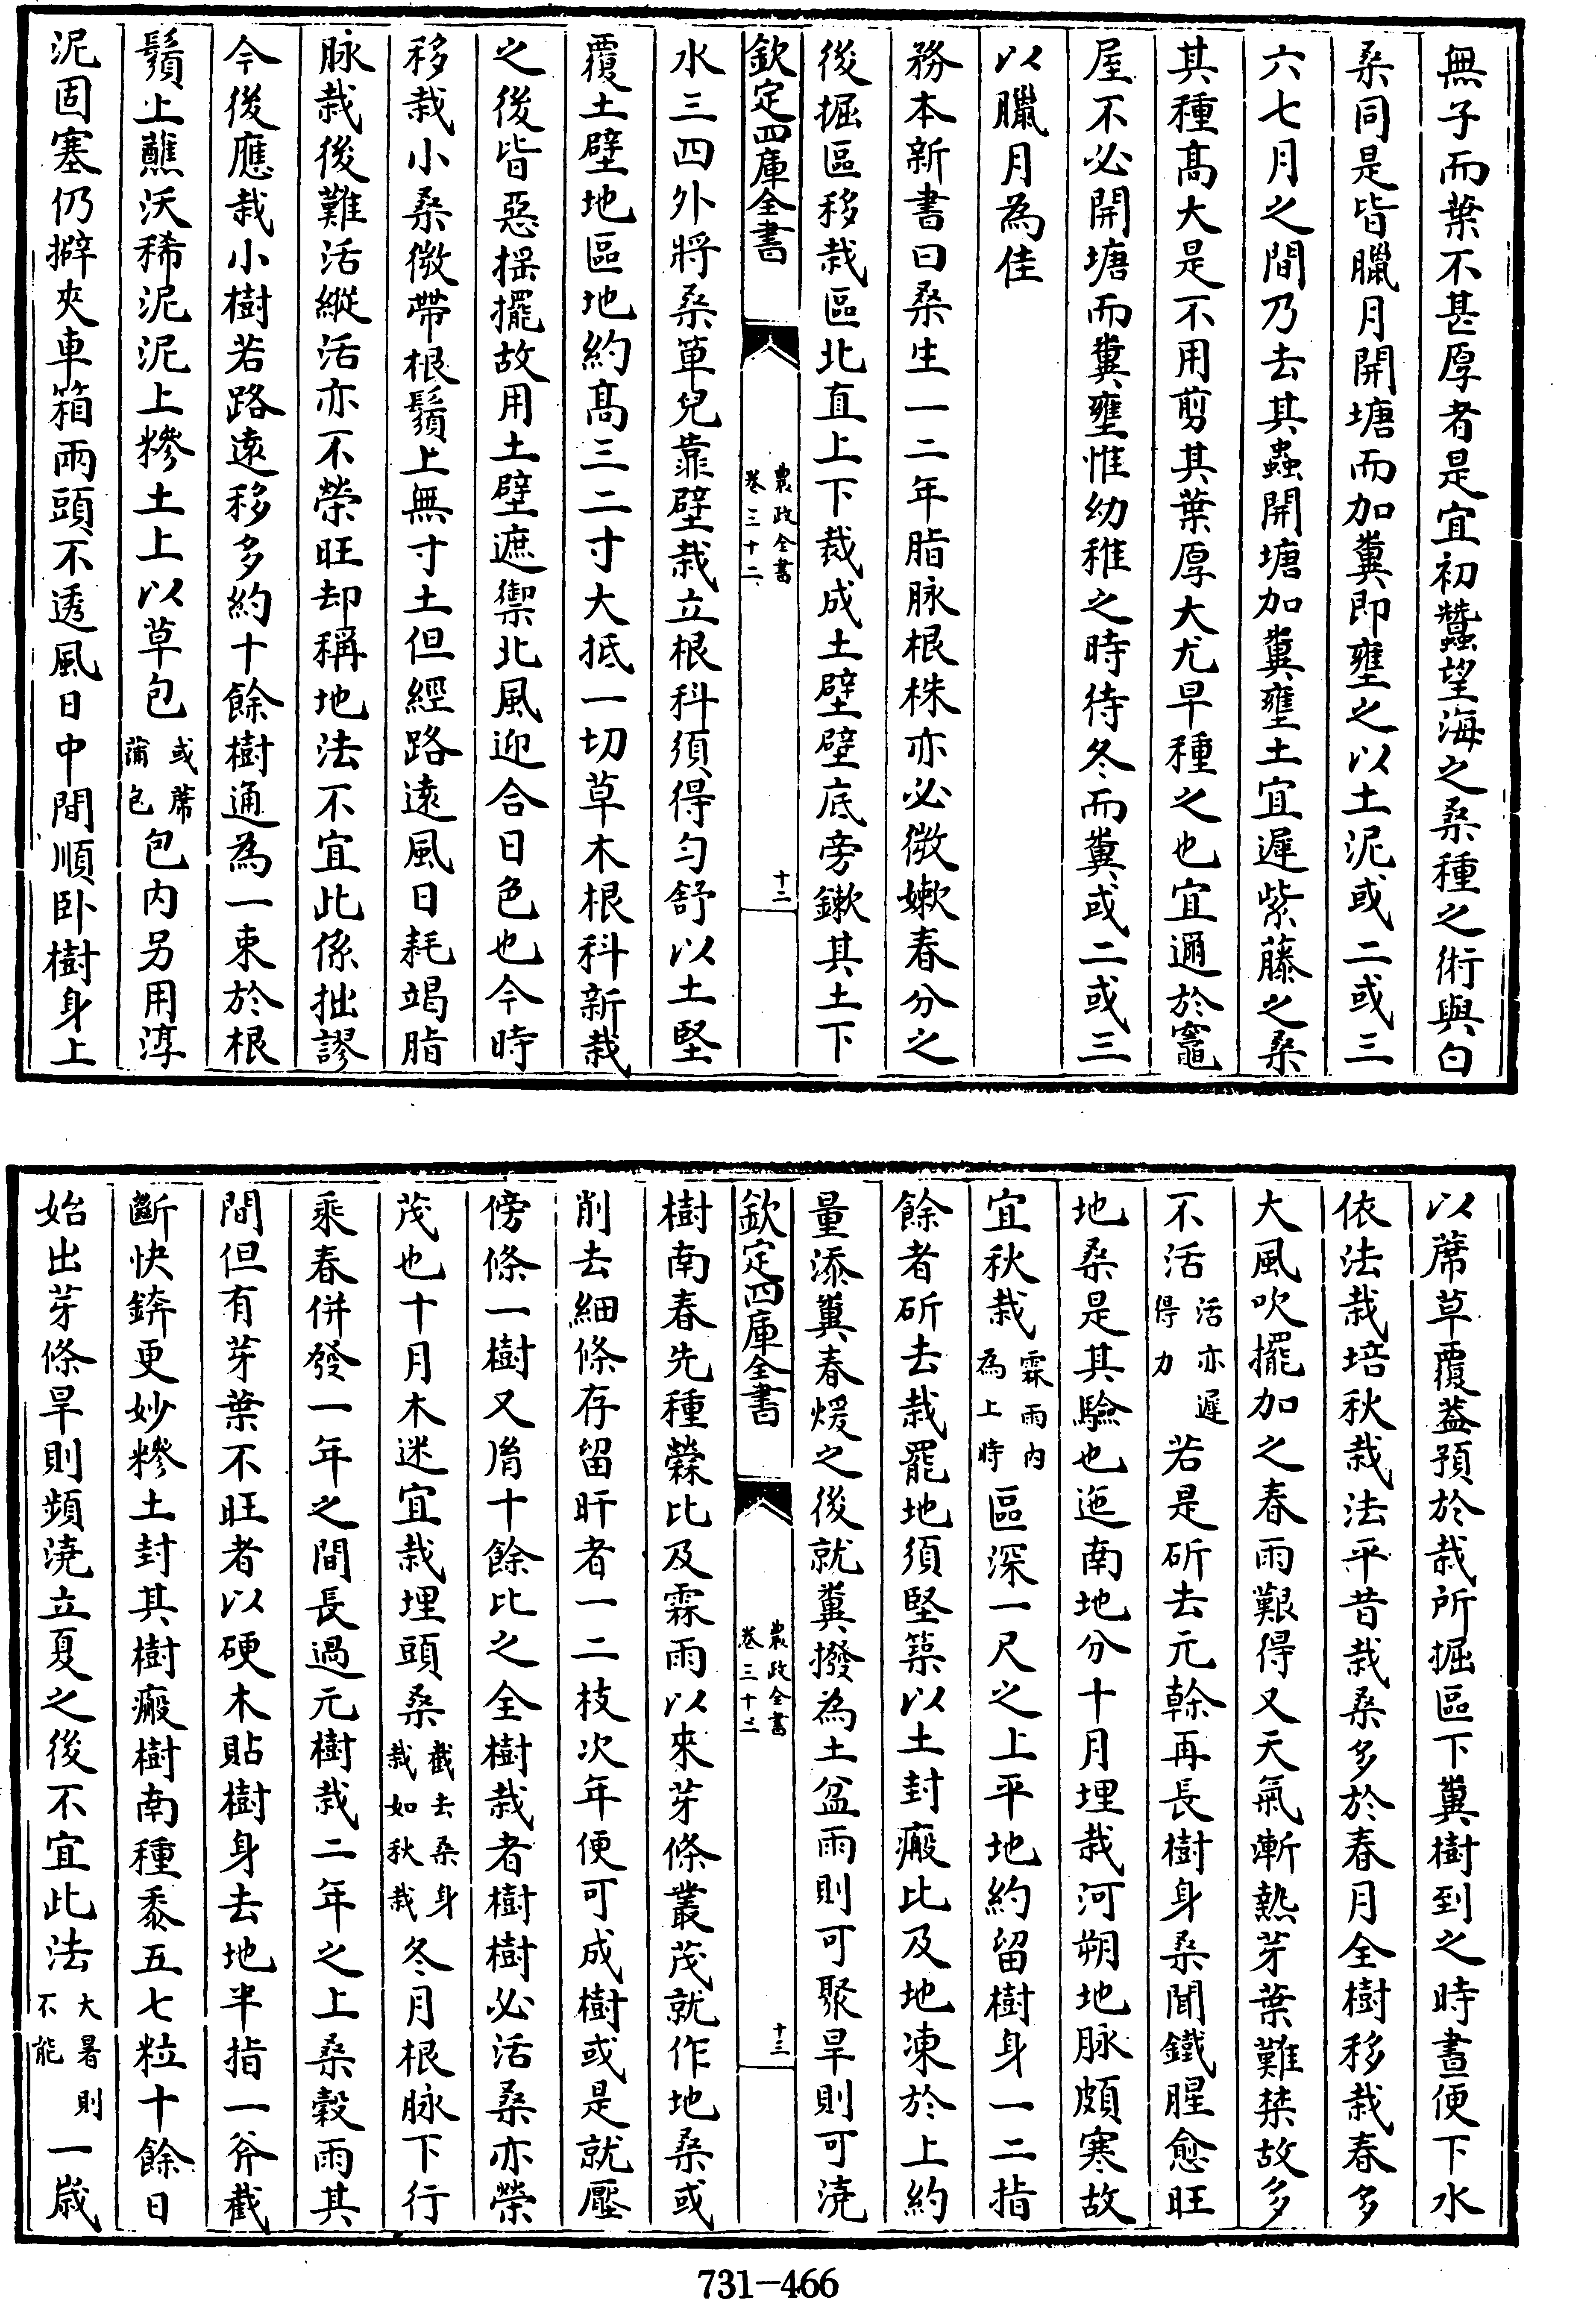 無子而葉不甚厚者是宜初蠶望海之桑種之術與白
桑同是皆臘月開塘而加糞即壅之以土泥或二或三
六七月之間乃去其蟲開塘加糞壅土宜遲紫藤之桑
其種髙大是不用剪其葉厚大尤早種之也宜邇於竈
屋不必開塘而糞壅惟幼稚之時待冬而糞或二或三
以臘月為佳
務本新書曰桑生一二年脂脉根株亦必微嫰春分之
後掘區移栽區北直上下裁成土壁壁底旁鏉其土下
欽定四庫全書
農政全書
卷三十二
十二
水三四外將桑箪兒靠壁栽立根科須得勻舒以土堅
覆土壁地區地約髙三二寸大抵一切草木根科新栽
之後皆惡揺擺故用土壁遮禦北風迎合日色也今時
移栽小桑微帶根鬚上無寸土但經路遠風日耗竭脂
脉栽後難活縱活亦不榮旺却稱地法不宜此係拙謬
今後應栽小樹若路遠移多約十餘樹通為一束於根
鬚上蘸沃稀泥泥上糝土上以草包或蓆蒲包包内另用淳
泥固塞仍擗夾車箱兩頭不透風日中間順卧樹身上
以蓆草覆葢預於栽所掘區下糞樹到之時晝便下水
依法栽培秋栽法平昔栽桑多於春月全樹移栽春多
大風吹擺加之春雨艱得又天氣漸熱芽葉難禁故多
不活活亦遲得力若是斫去元榦再長樹身桑聞鐵腥愈旺
地桑是其驗也迤南地分十月埋栽河朔地脉頗寒故
宜秋栽霖雨内為上時區深一尺之上平地約留樹身一二指
餘者斫去栽罷地須堅築以土封瘢比及地凍於上約
量添糞春煖之後就糞撥為土盆雨則可聚旱則可澆
欽定四庫全書
農政全書
卷三十二
十三
樹南春先種蕀比及霖雨以來芽條叢茂就作地桑或
削去細條存留旰者一二枝次年便可成樹或是就壓
傍條一樹又胤十餘比之全樹栽者樹樹必活桑亦榮
茂也十月木迷宜栽埋頭桑截去桑身栽如秋栽冬月根脉下行
乘春併發一年之間長過元樹栽二年之上桑榖雨其
間但有芽葉不旺者以硬木貼樹身去地半指一斧截
斷快錛更妙糝土封其樹瘢樹南種黍五七粒十餘日
始出芽條旱則頻澆立夏之後不宜此法大暑則不能一歳
731-466